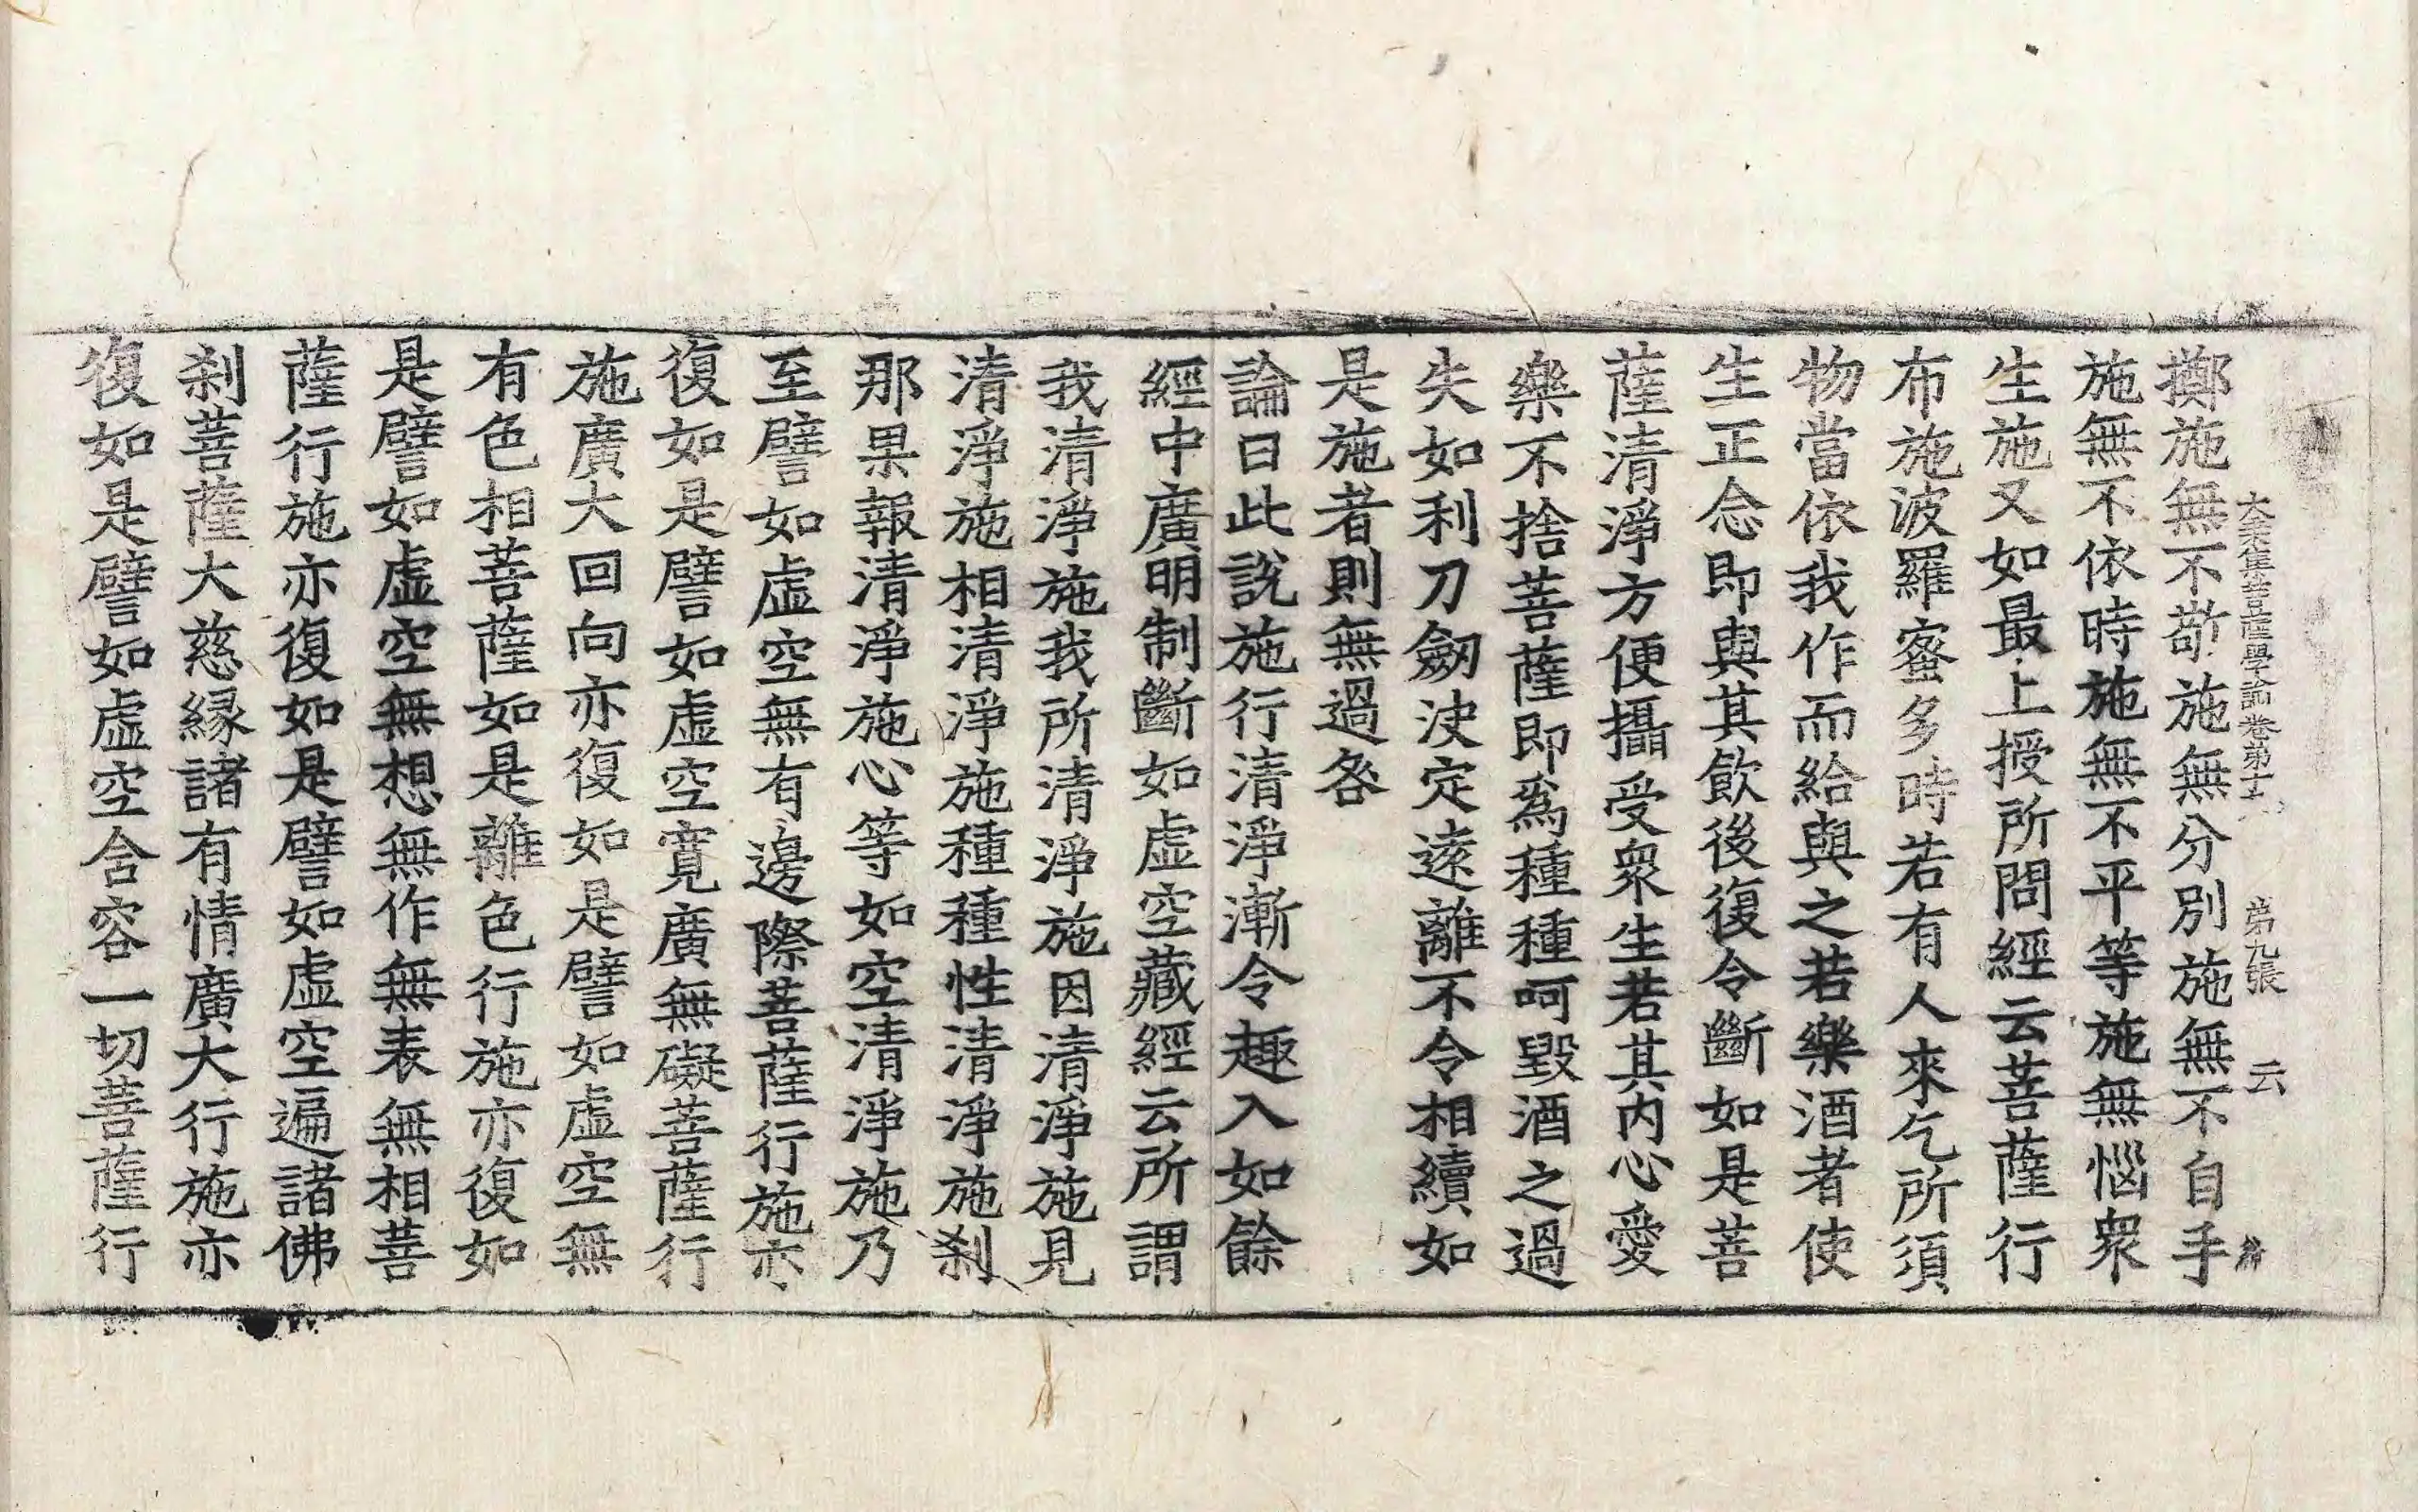 擲施無不㪣施無分別施無不自手
大乗集菩薩學論卷第十六 第九張 云
施無不依時施無不平等施無惱衆
生施又如最上授所問經云菩薩行
布施波羅蜜多時若有人來乞所須
物當依我作而給與之若樂酒者使
生正念即與其飲後復令斷如是菩
薩清淨方便攝受衆生若其内心愛
樂不捨菩薩即爲種種呵毀酒之過
失如利刀劒決定遠離不令相續如
是施者則無過咎
論曰此說施行清淨漸令趣入如餘
經中廣明制斷如虛空藏經云所謂
我清淨施我所清淨施因清淨施見
清淨施相清淨施種種性清淨施刹
那果報清淨施心等如空清淨施乃
至譬如虛空無有邊際菩薩行施亦
復如是譬如虛空寬廣無礙菩薩行
施廣大回向亦復如是譬如虛空無
有色相菩薩如是離色行施亦復如
是譬如虛空無想無作無表無相菩
薩行施亦復如是譬如虛空遍諸佛
刹菩薩大慈縁諸有情廣大行施亦
復如是譬如虛空含容一切菩薩行